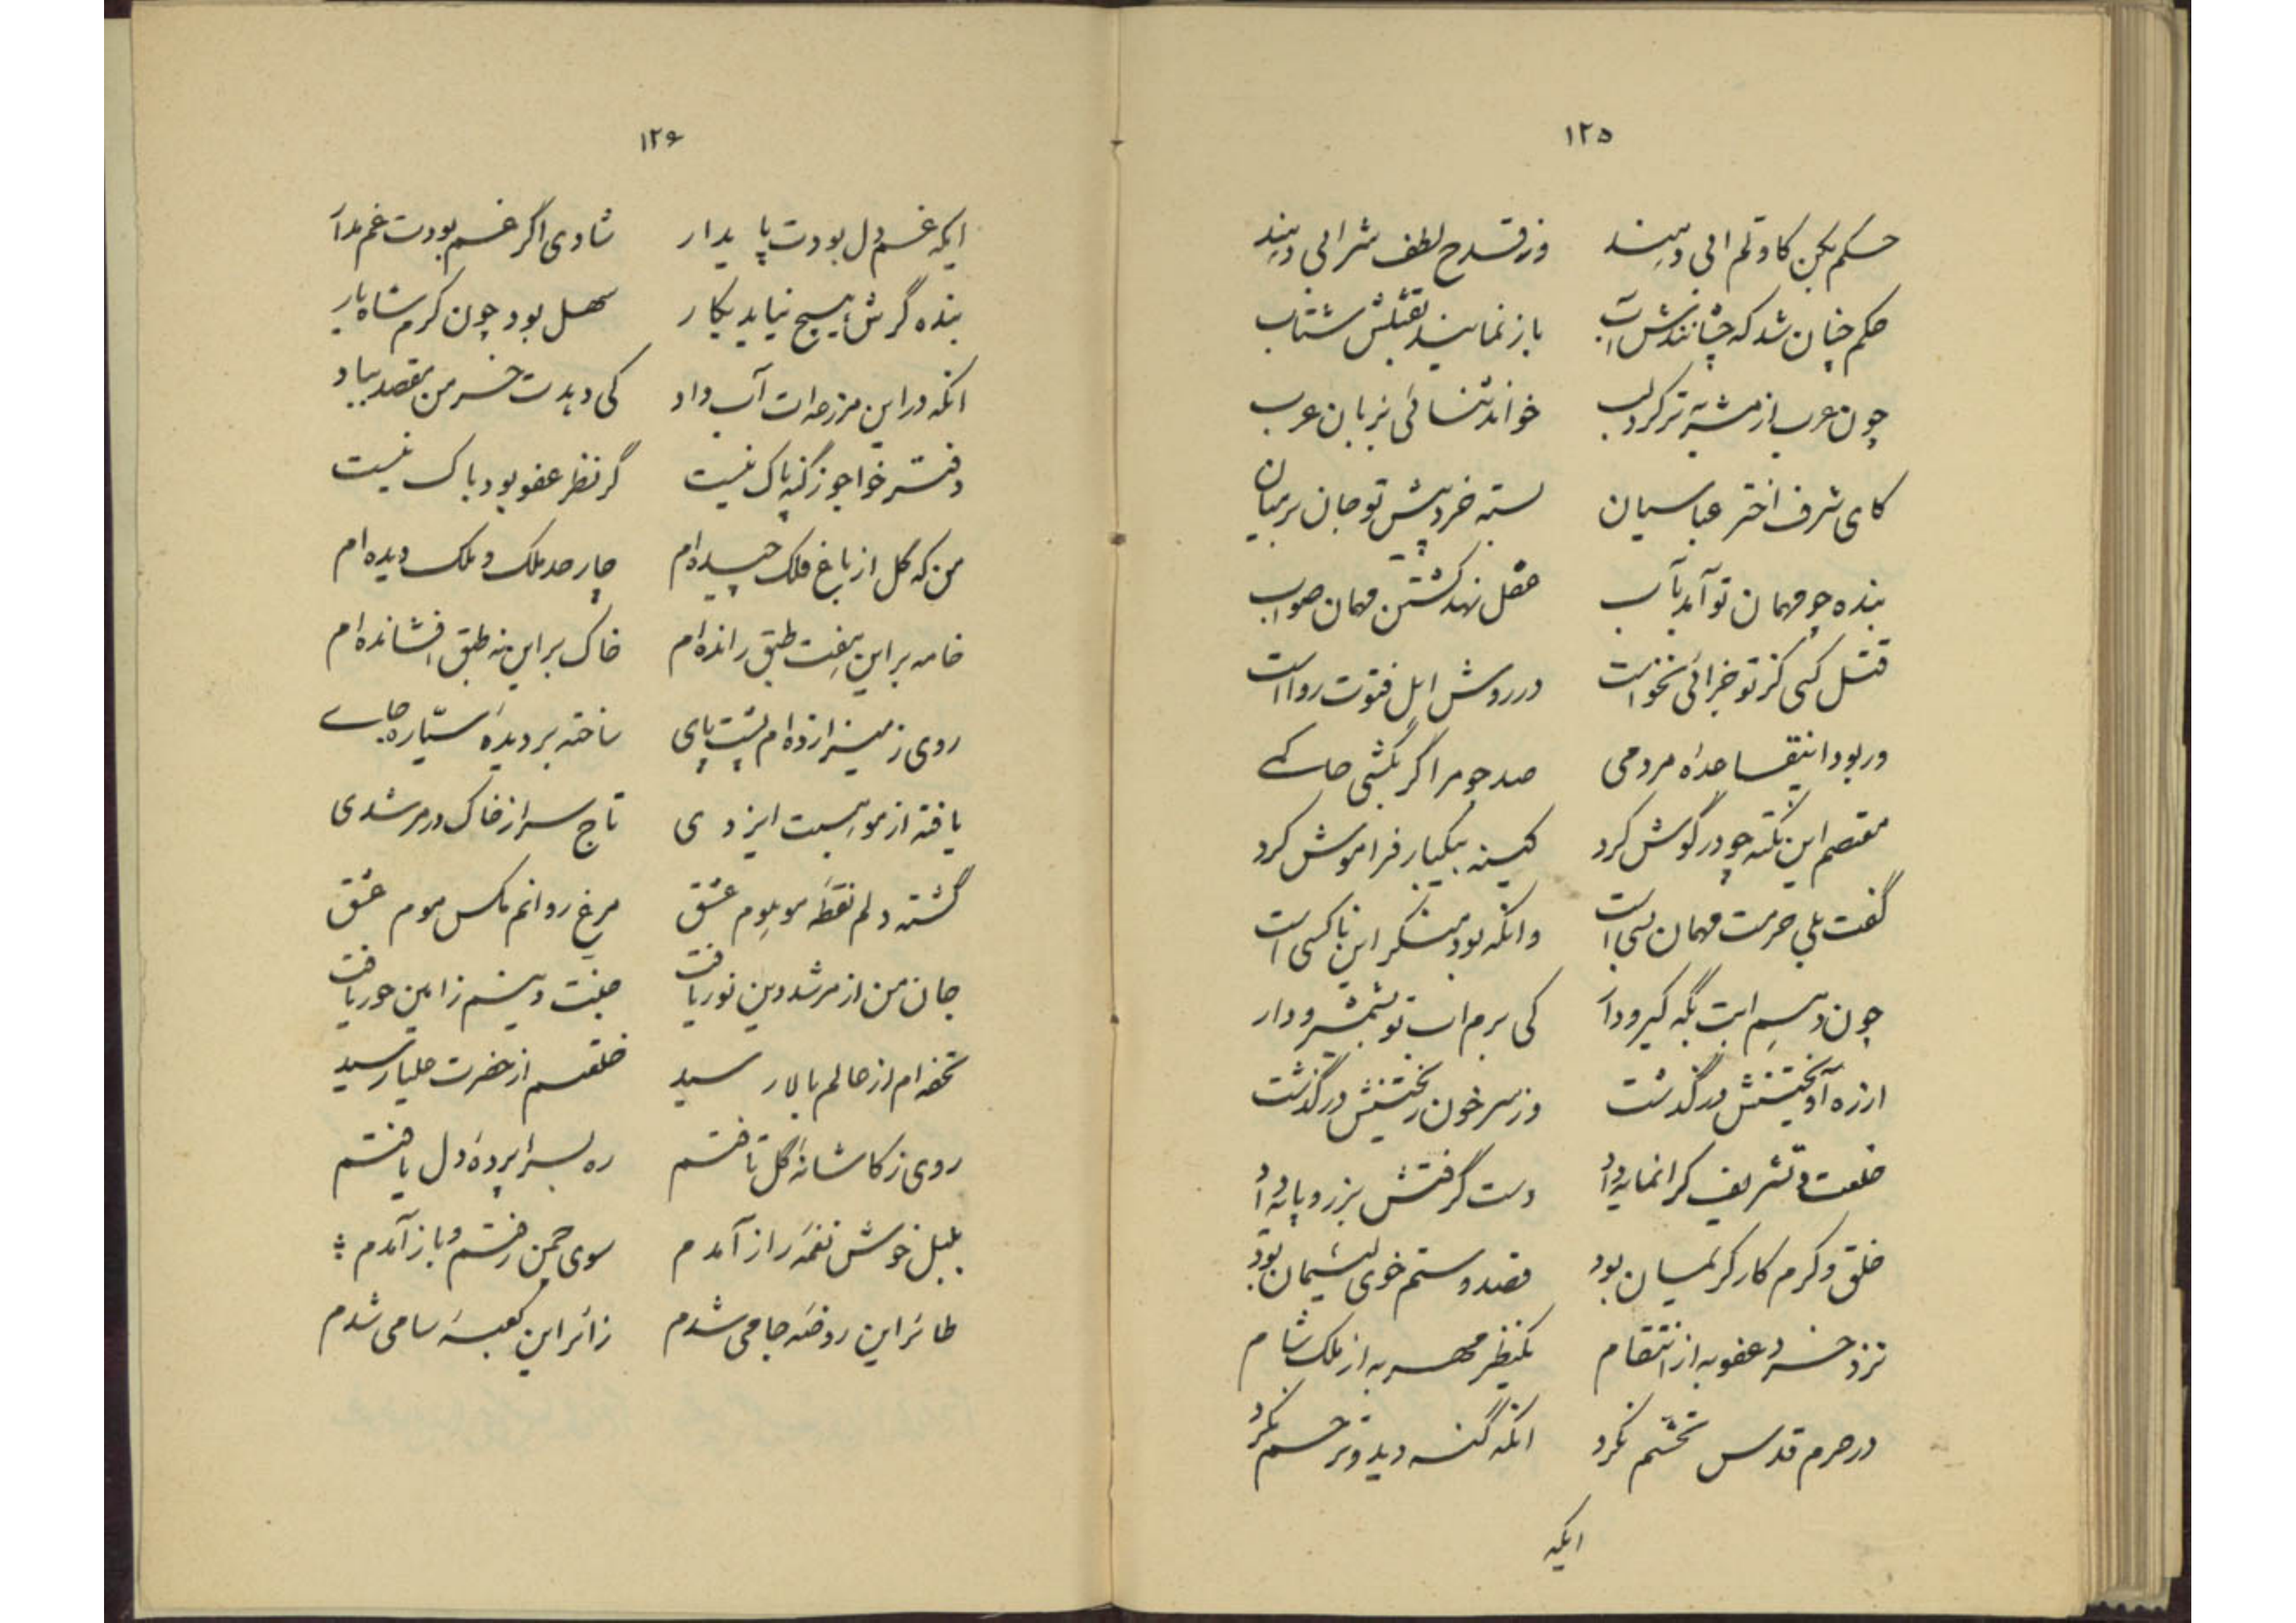 ۱۲۵
حکم بکن کاو تم آبی دهند وز قدح لطف شرابی دهند
حکم چنان شد که چشانندش آب باز نمایند بقتلش شتاب
چون عرب از مشربه تر کرد لب خواند ثنائی بزبان عرب
کای شرف اختر عباسیان بسته خرد پیش تو جان بر میان
بنده چو مهمان تو آمد بآب عقل نهد کشتن مهمان صواب
قتل کسی کز تو جز آبی نخواست در روش اهل فتوت رواست
ور بود اینقاعده مردمی صد چو مرا گر بکشی حاکمی
معتصم این نکته چو در گوش کرد کینه بیکبار فراموش کرد
گفت بلی حرمت مهمان بسی است وانکه بود منکر این ناکسی است
چون دهم ابت بگه گیر و دار کی برم اب تو بشمشیر و دار
از ره آویختنش در گذشت وز سر خون ریختنش درگذشت
خلعت و تشریف گرانمایه داد دست گرفتش بزر و پایه داد
خلق و کرم کار کریمان بود قصد و ستم خوی لئیمان بود
نزد خرد عفو به از انتقام یکنظر مهر به از ملک شام
در حرم قدس تخشم نکرد انکه گنه دید و ترحم نکرد
ایکه
۱۲۶
ایکه غم دل بودت پایدار شادی اگر غم بودت غم مدار
بنده گرش هیچ نیاید بکار سهل بود چون کرم شاه یار
انکه در این مزرعه ات آب داد کی دهدت خرمن مقصد بباد
دفتر خواجو ز گنه پاک نیست گر نظر عفو بود باک نیست
من که گل از باغ فلک چیده‌ام چار حد ملک و ملک دیده‌ام
خامه بر این هفت طبق رانده‌ام خاک بر این نه طبق افشانده‌ام
روی زمین را زده ام پشت پای ساخته بر دیدهٔ سیّاره جای
یافته از موهبت ایزدی تاج سر از خاک در مرشدی
گشته دلم نقطه موهوم عشق مرغ روانم مکس موم عشق
جان من از مرشد دین نور یافت جنت دینم ز امین حور یافت
تحفه‌ام از عالم بالا رسید خلعتم از حضرت علیا رسید
روی ز کاشانه گل تافتم ره بسراپردهٔ دل یافتم
بلبل خوش نغمه راز آمدم سوی چمن رفتم و باز آمدم
طائر این روضه جامی شدم زائر این کعبه سامی شدم